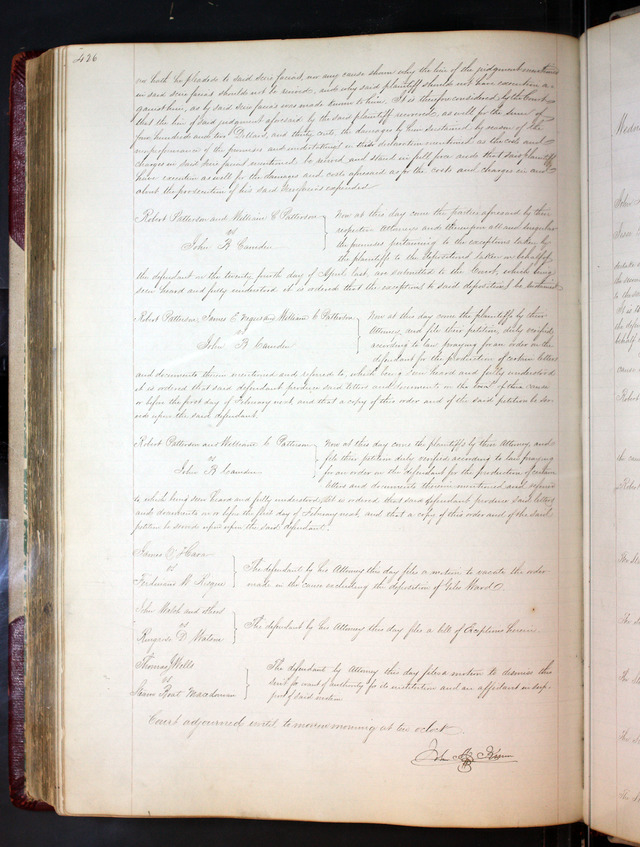 426
nor hath he pleaded to said scire facias, nor any cause shown why the lien of the judgment mentioned
in said scire facias should not be revived, and why said plaintiff should not have execution a-
gainst him, as by said scire facias was made known to him. It is therefore considered by the Court
that the lien of said judgment aforesaid by the said plaintiff revived, as well for the sum of
four hundred and two Dollars, and thirty cents, the damages by him sustained by reason of the
nonperformance of the promises and undertakings in the declaration mentioned as the costs and
charges in said scire facias mentioned be revived and stand in full force and that said plaintiff
have execution as well for the damages and costs aforesaid as for the costs and charges in and
about the prosecution of his said scire facias expended
Robert Patterson and William C Patterson
vs
John B Camden
Now at this day come the parties aforesaid by their
respective Attorneys and thereupon all and singular
the premises pertaining to the exceptions taken by
the plaintiffs to the depositions taken in behalf of
the defendant on the twenty fourth day of April last, are submitted to the Court, which being
seen heard and fully understood it is ordered that the exceptions to said depositions be sustained
Robert Patterson, James E William C Patterson
vs
John B Camden
Now at this day come the plaintiffs by their
Attorney, and file their petition, duly verified
according to law praying for an order on the
defendant for the production of certain letters
and documents therein mentioned and referred to, which being seen heard and fully understood
it is ordered that said defendant produce said letters and documents on the of this cause
on before the first day of February next and that a copy of this order and of the said petition be ser-
ved upon the said defendant.
Robert Patterson and William C. Patterson
vs
John B Camden
Now at this day come the plaintiffs by their Attorney, and
file their petition duly verified according to law praying
for an order on the defendant for the production of certain
letters and documents therein mentioned and referred
to which being seen heard and fully understood, it is ordered that said defendant produce said letters
and documents on or before the first day of February next, and that a copy of this order and of the said
petition be served upon upon the said defendant.
James O'Hara
vs
Ferdinand W. Risque
The defendant by his Attorney this day files a motion to vacate the order
made in the cause excluding the deposition of Giles Ward
John Walsh and others
vs
D. Watson
The defendant by his Attorney this day files a bill of Exceptions herein
Thomas Wells
vs
Steam Boat
The defendant by Attorney this day filed a motion to dismiss this
suit for want of authority for its institution and an affidavit in sup-
port of said motion
Court adjourned until tomorrow morning at ten oclock
John M. Krum